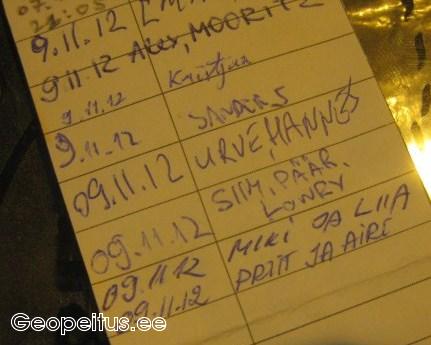 07.
21:05
9.11.12
9.11.12 Alex, MOORITZ
9.11.12 Kristjan
9.11.12 SANDER S
09.11.12 URVE, HANNES
09.11.12 SIIM, PÄÄR,
LOWRY
09.11.12 MIKI JA LIIA
09.11.12 PRIIT JA AIRE
Geopeitus.ee